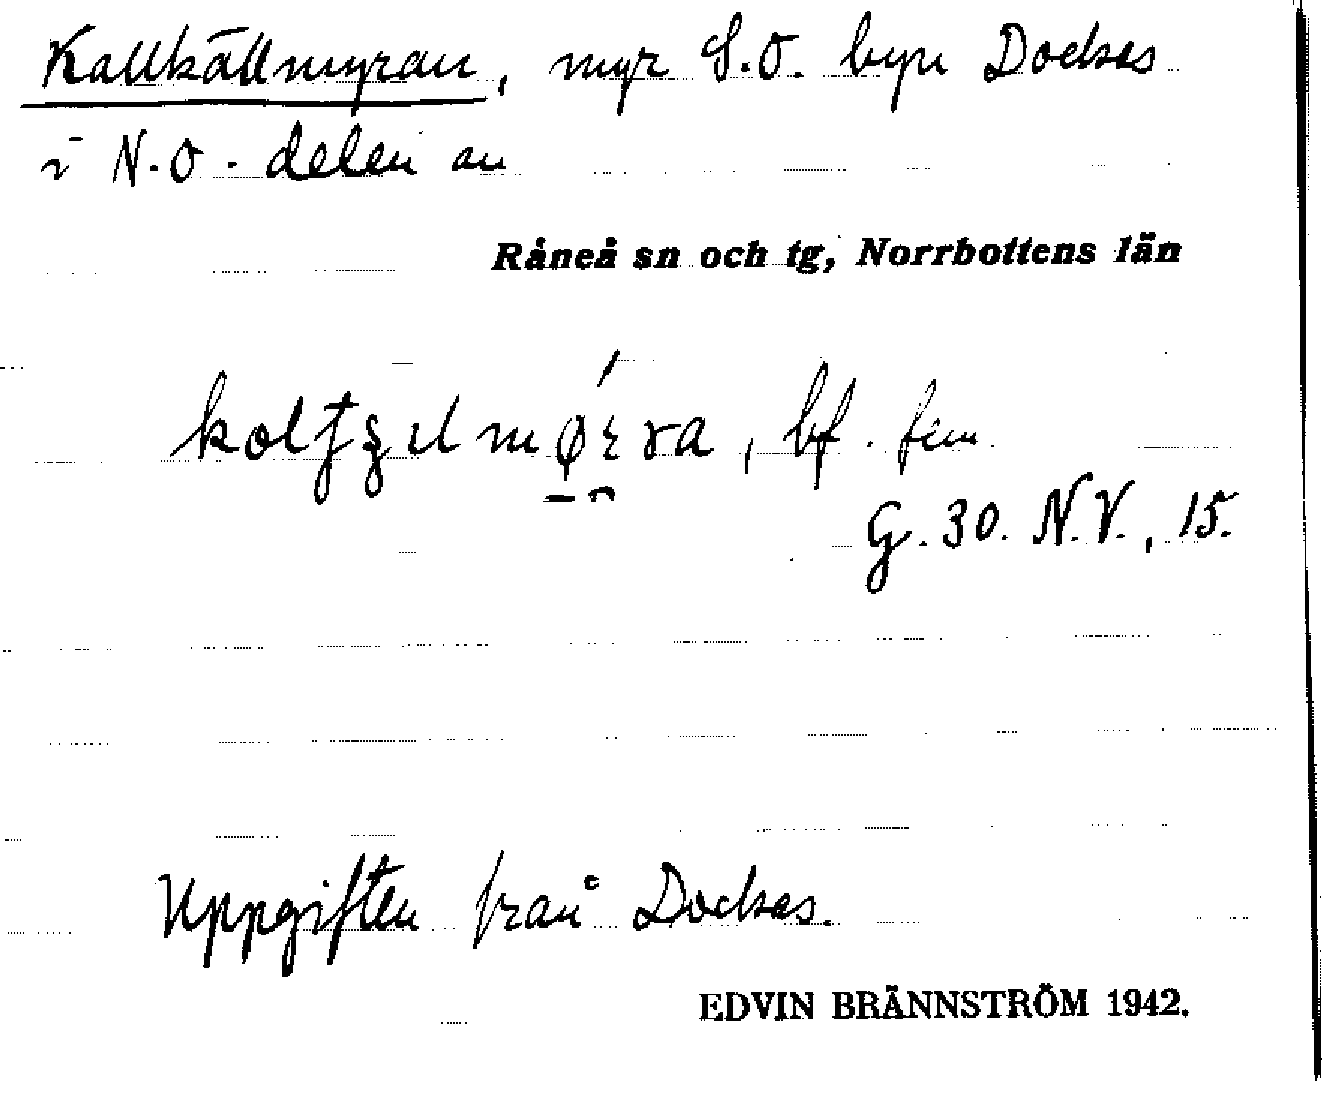 Kallkällmyran, myr S.O. byn Dockas
i N.O. delen av
Råneå sn och tg, Norrbottens län
bf. fem.
G. 30. N.V., 15.
Uppgiften från Dockas.
EDVIN BRÄNNSTRÖM 1942.